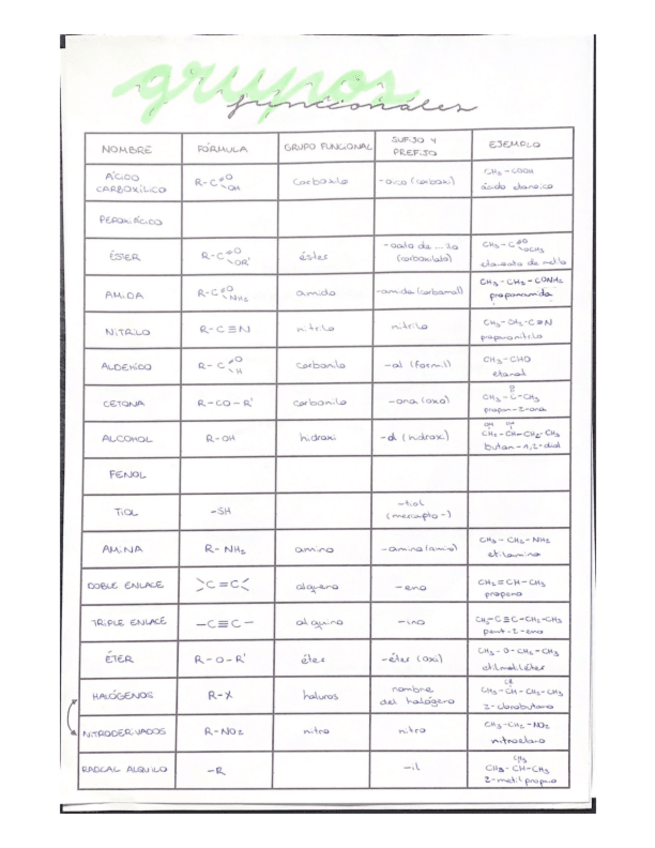 grupos
funcionales
NOMBRE FÓRMULA GRUPO FUNCIONAL SUFIJO Y PREFIJO EJEMPLO
ÁCIDO CARBOXÍLICO R-C=O OH carboxilo -oico (carboxi) CH3-COOH ácido etanoico
PEROXIÁCIDO
ÉSTER R-C=O OR' éster -oato de ... ilo (carboxilato) CH3-C=O OCH3 etanoato de metilo
AMIDA R-C=O NH2 amido -amida (carbamoil) CH3-CH2-CONH2 propanamida
NITRILO R-C≡N nitrilo nitrilo CH3-CH2-C≡N propanonitrilo
ALDEHÍDO R-C=O H carbonilo -al (formil) CH3-CHO etanal
CETONA R-CO-R' carbonilo -ona (oxo) CH3-C-CH3 O propan-2-ona
ALCOHOL R-OH hidroxi -ol (hidroxi) OH OH CH2-CH-CH2-CH3 butan-1,2-diol
FENOL
TIOL -SH -tiol (mercapto-)
AMINA R-NH2 amino -amina (amino) CH3-CH2-NH2 etilamina
DOBLE ENLACE >C=C< alqueno -eno CH2=CH-CH3 propeno
TRIPLE ENLACE -C≡C- alquino -ino CH3-C≡C-CH2-CH3
ÉTER R-O-R' éter -éter (oxi) CH3-O-CH2-CH3 etilmetiléter
HALÓGENOS R-X haluros nombre del halógeno CH3-CH-CH2-CH3 2-clorobutano
NITRODERIVADOS R-NO2 nitro nitro CH3-CH2-NO2 nitroetano
RADICAL ALQUILO -R -il CH3 CH3-CH-CH3 2-metil propano